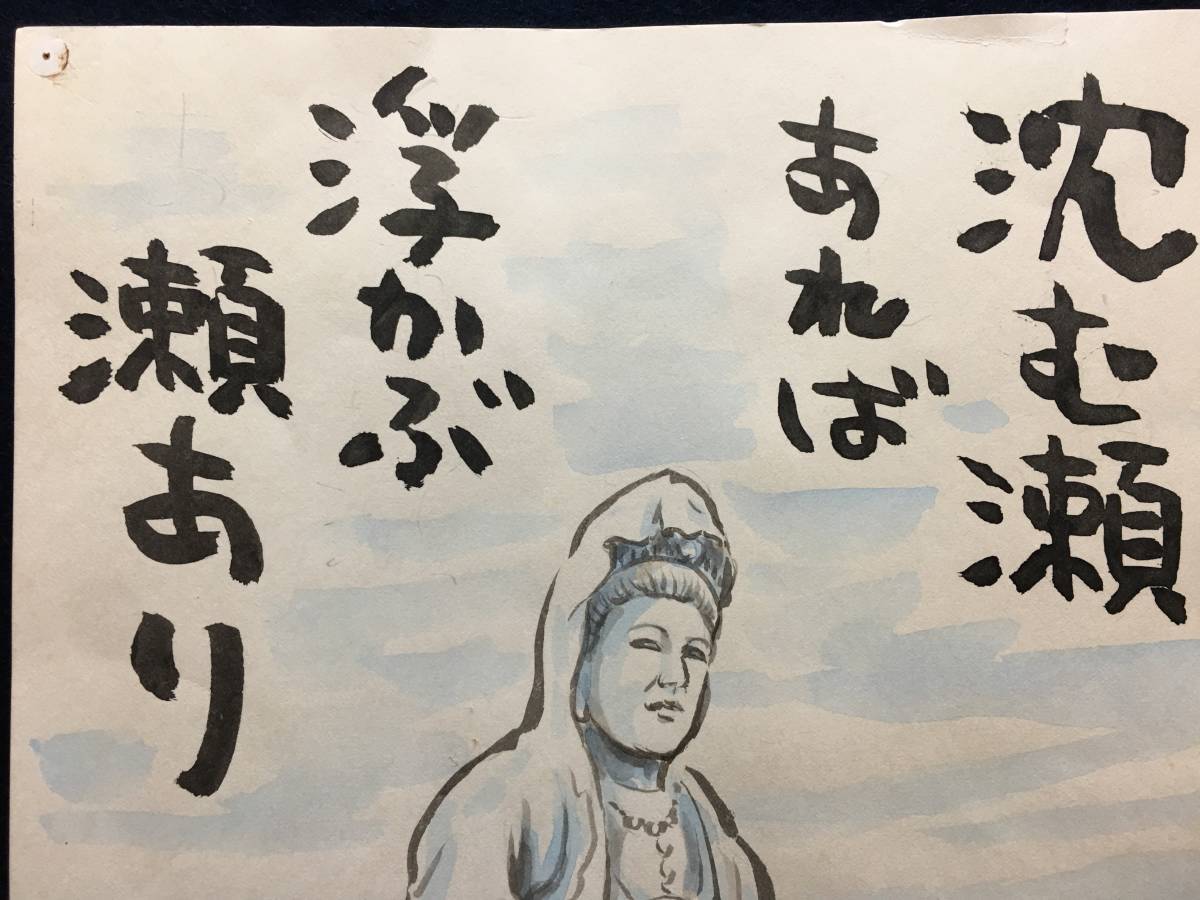 沈む瀬
あれば
浮かぶ
瀬あり